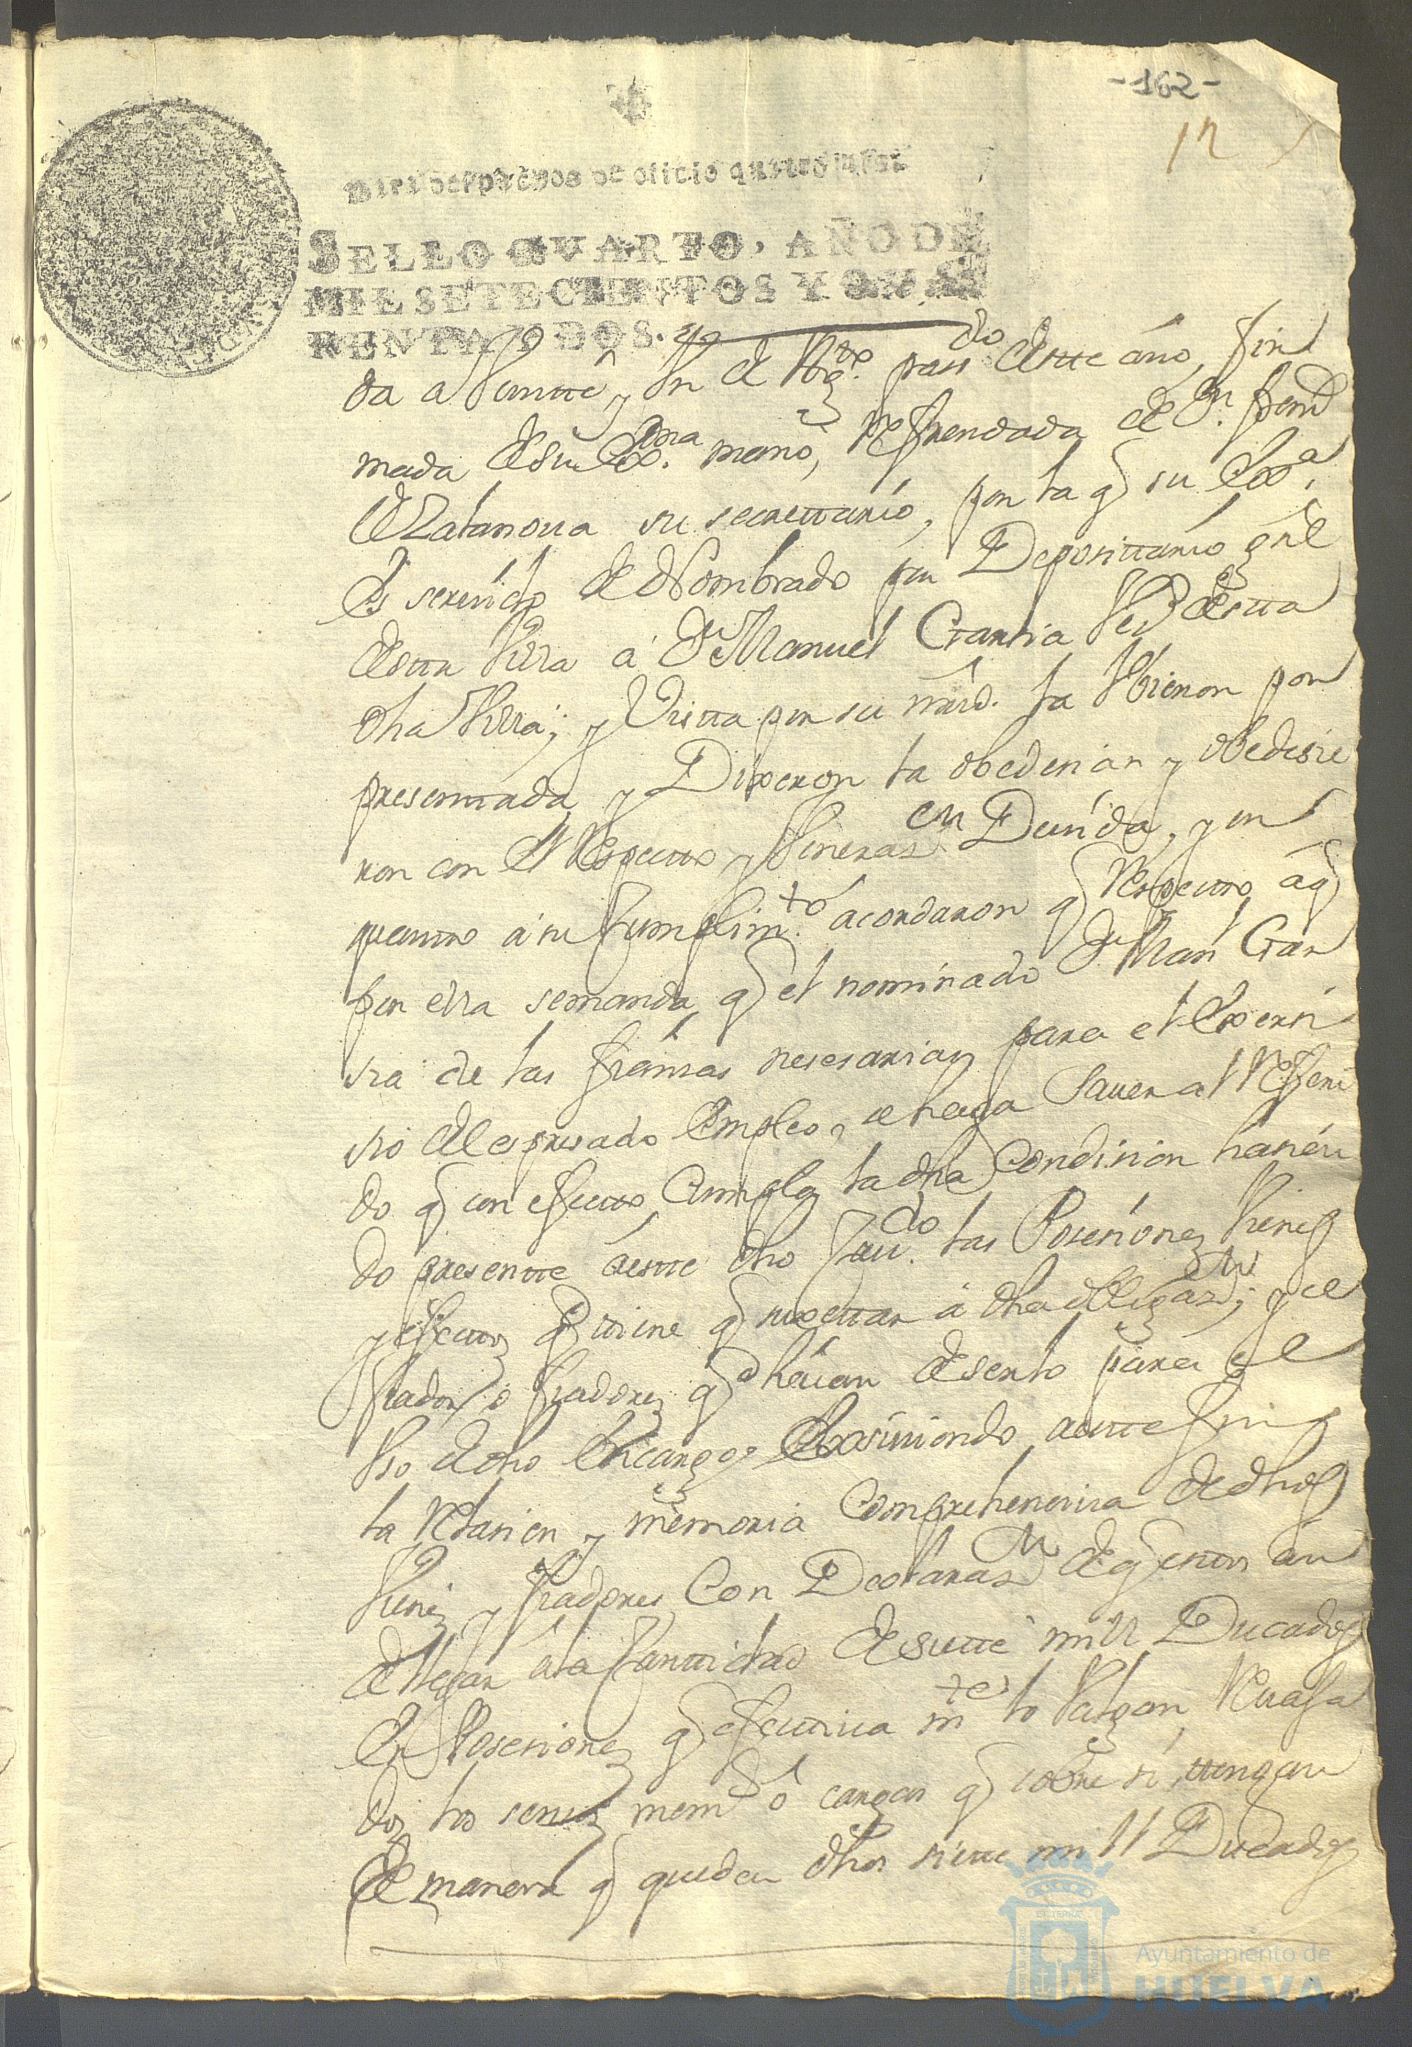 -162-
12
Para despachos de oficio quatro mrs.
SELLO QVARTO, AÑO DE
MIL SETECIENTOS Y QVA-
RENTA Y DOS.
da a Veintte y Un de Ag.to pass.do deste año, fir
mada de su Ex.ma mano, Refrendada de Dn. fernd
su secrettario, por la q su Exx.a
Es servido de Nombrado por Deposittario gral
desta Villa á Dn Manuel Garsia Vez.o desta
dha Villa; y Vista por su mrd. la Vbieron por
presenttada y Dixeron la obedecian y obedesie
ron con el Respecto y Veneraz.n Devida, y en
quantto á su Cumplim.to acordaron q Respecto áq
por ella semanda q el nominado Dn Man.l Gar
sia de las fiansas nesesarias para el Exerci
sio del expresado Empleo, se haga Saver al Referi
do q con efectto Cumpla la dha Condision hasien
do presentte áestte dho Cau.do las Posesiones Vienes
y efecttos q tiene q sugettar á dha obligaz.n; y el
fiador, ó fiadores q hayan de serlo para el
dho Encargo, Exsiviendo a estte fin
la Relasion y memoria Comprehensiva de dhos
Vienes y fiadores Con Declaraz.n de q esttos an
de llegar á la Canttidad de siette mill Ducados
En Posesiones q efecttiva m.te lo Valgan, Revaja
dos los sensos mem.s ó cargas q sobre si ttengan
de manera q queden dhos siette mill Ducados
Ayuntamiento de
HUELVA